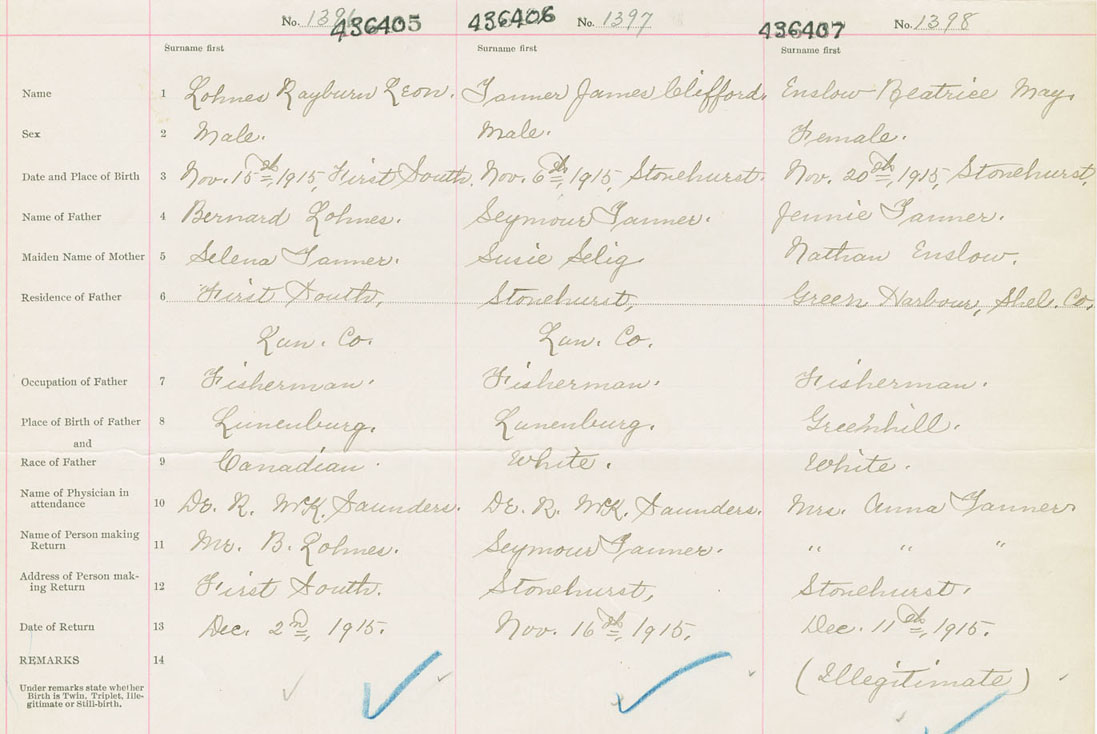 No. 1396 436405 436406 No. 1397 436407 No. 1398
Surname first Surname first Surname first
Name 1 Lohnes Rayburn Leon. Tanner James Clifford. Enslow Beatrice May.
Sex 2 Male. Male. Female.
Date and Place of Birth 3 Nov. 15th, 1915, First South. Nov. 6th, 1915, Stonehurst. Nov. 20th, 1915, Stonehurst.
Name of Father 4 Bernard Lohnes. Seymour Tanner. Jennie Tanner.
Maiden Name of Mother 5 Selena Tanner. Susie Selig Nathan Enslow.
Residence of Father 6 First South, Stonehurst, Green Harbour, Shel. Co.
Lun. Co. Lun. Co.
Occupation of Father 7 Fisherman. Fisherman. Fisherman.
Place of Birth of Father 8 Lunenburg. Lunenburg. Greenhill.
and
Race of Father 9 Canadian. White. White.
Name of Physician in
attendance 10 Dr. R. McK. Saunders. Dr. R. McK. Saunders. Mrs. Anna Tanner
Name of Person making
Return 11 Mr. B. Lohnes. Seymour Tanner. " " "
Address of Person mak-
ing Return 12 First South. Stonehurst, Stonehurst.
Date of Return 13 Dec. 2nd, 1915. Nov. 16th, 1915. Dec. 11th, 1915.
REMARKS 14 (Illegitimate)
Under remarks state whether
Birth is Twin. Triplet, Ille-
gitimate or Still-birth.